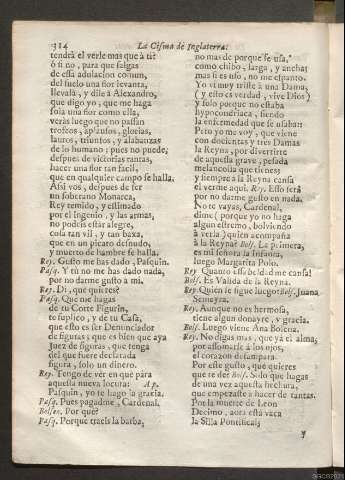 314 La Cisma de Inglaterra:
tendrà el verle mas que à ti?
ò si no, para que salgas
de essa adulacion comun,
del suelo una flor levanta,
llevala, y dile à Alexandro,
que digo yo, que me haga
sola una flor como ella,
veràs luego que no passan
trofeos, aplausos, glorias,
lauros, triunfos, y alabanzas
de lo humano; pues no puede,
despues de victorias tantas,
hacer una flor tan facil,
que en qualquier campo se halla.
Assi vos, despues de ser
un soberano Monarca,
Rey temido, y estimado
por el ingenio, y las armas,
no podeis estàr alegre,
cosa tan vil, y tan baxa,
que en un picaro desnudo,
y muerto de hambre se halla.
Rey. Gusto me has dado, Pasquin.
Pasq. Y tù no me has dado nada,
por no darme gusto à mi.
Rey. Di, què quieres?
Pasq. Que me hagas
de tu Corte Figurin,
te suplico, y de tu Casa,
que esto es ser Denunciador
de figuras; que es bien que aya
Juez de figuras, que tenga
del que fuere declarada
figura, solo un dinero.
Rey. Tengo de vèr en què pàra
aquesta nueva locura: Ap.
Pasquin, yo te hago la gracia.
Pasq. Pues pagadme, Cardenal.
Bolseo. Por què?
Pasq. Porque traeis la barba,
no mas de porque se usa,
como chibo, larga, y ancha;
mas si es uso, no me espanto.
Yo vi muy triste à una Dama,
(y esto es verdad, vive Dios)
y solo porque no estaba
hypocondriaca, siendo
la enfermedad que se usaba.
Pero yo me voy, que viene
con docientas y tres Damas
la Reyna, por divertirte
de aquesta grave, pesada
melancolia que tienes;
y siempre à la Reyna cansa
el verme aqui. Rey. Esso serà
por no darme gusto en nada.
No te vayas, Cardenal,
dime (porque yo no haga
algun estremo, bolviendo
à verla) quien acompaña
à la Reyna? Bols. La primera,
es mi señora la Infanta,
luego Margarita Polo.
Rey. Quanto essa beldad me cansa!
Bols. Es Valida de la Reyna.
Rey. Quien se sigue luego? Bols. Juana
Semeyra.
Rey. Aunque no es hermosa,
tiene algun donayre, y gracia.
Bols. Luego viene Ana Bolena.
Rey. No digas mas, que ya el alma,
por assomarse à los ojos,
el corazon desampara.
Por este gusto, què quieres
que te dè? Bols. Solo que hagas
de una vez aquesta hechura,
que empezaste à hacer de tantas.
Por la muerte de Leon
Decimo, aora està vaca
la Silla Pontificals
y